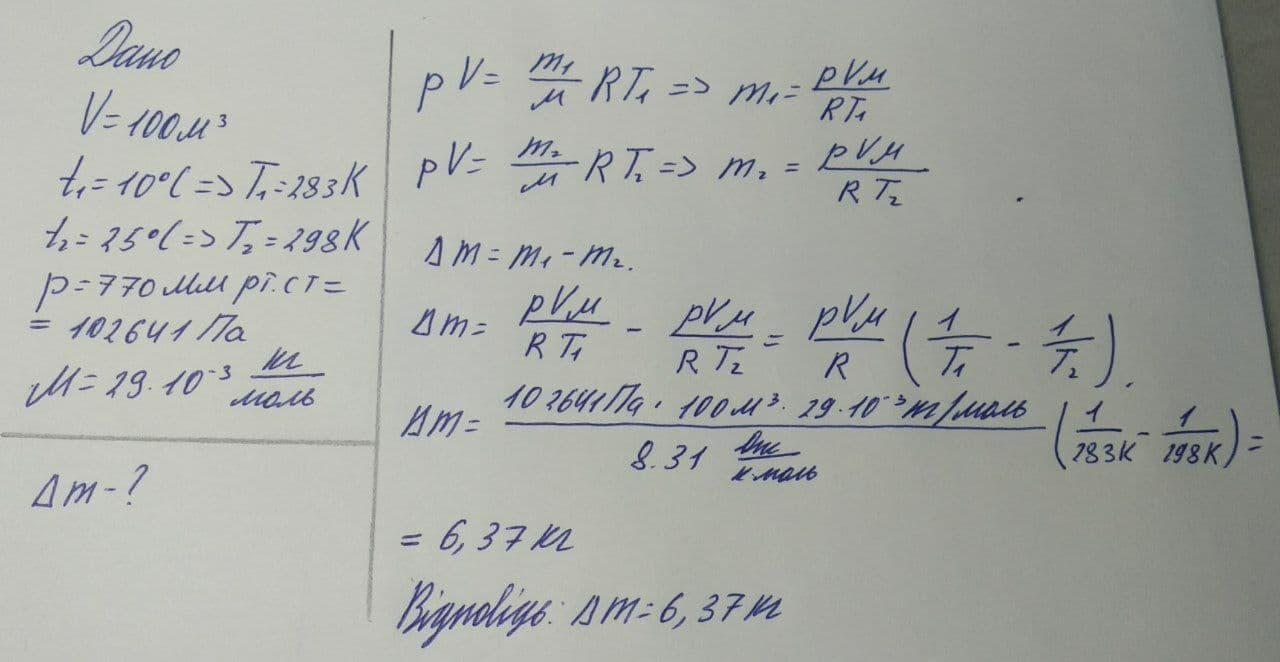 Дано
V=100м³
t₁=10°C=>T₁=283К
t₂=25°C=>T₂=298К
p=770мм рт.ст=
=102641Па
M=29·10⁻³ кг/моль
Δm-?
pV= m₁/M RT₁ => m₁= pVM/RT₁
pV= m₂/M RT₂ => m₂= pVM/RT₂
Δm=m₁-m₂.
Δm= pVM/RT₁ - pVM/RT₂ = pVM/R (1/T₁ - 1/T₂).
Δm= 102641Па·100м³·29·10⁻³кг/моль / 8.31 Дж/К·моль (1/283К - 1/298К)=
=6,37кг
Відповідь: Δm=6,37кг